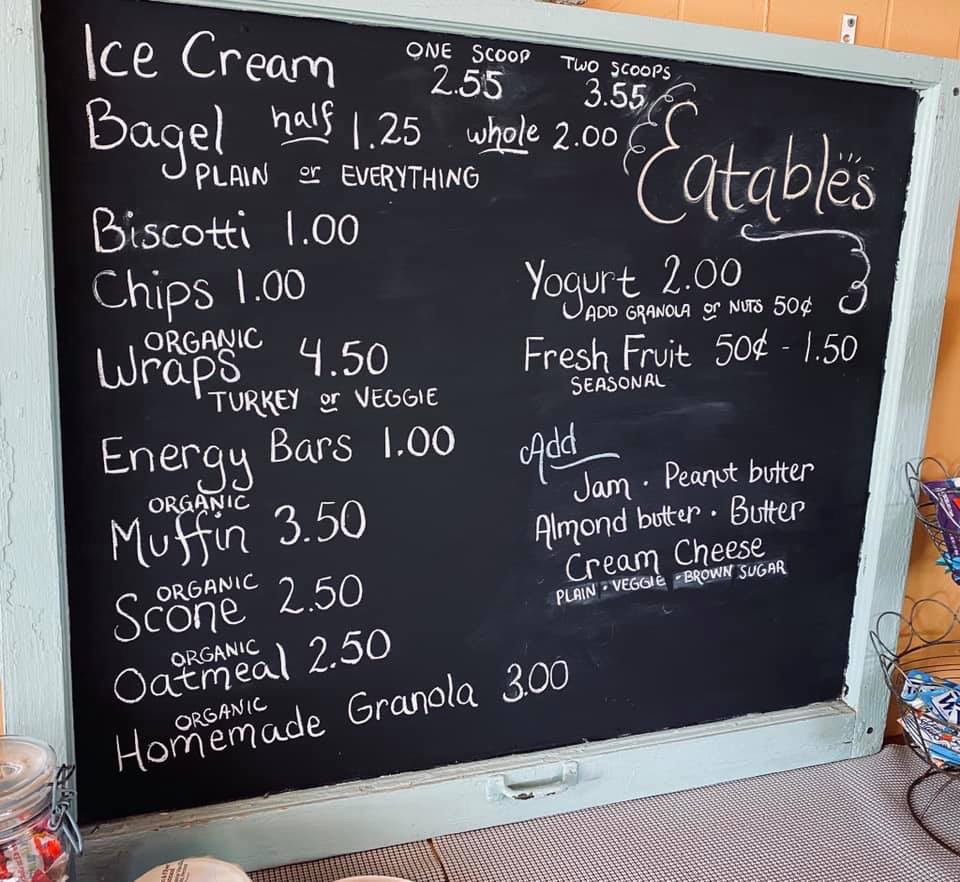 Ice Cream ONE SCOOP 2.55 TWO SCOOPS 3.55
Bagel half 1.25 whole 2.00
PLAIN or EVERYTHING
Biscotti 1.00
Chips 1.00
ORGANIC
Wraps 4.50
TURKEY or VEGGIE
Energy Bars 1.00
ORGANIC
Muffin 3.50
ORGANIC
Scone 2.50
ORGANIC
Oatmeal 2.50
ORGANIC
Homemade Granola 3.00
Eatables
Yogurt 2.00
ADD GRANOLA or NUTS 50¢
Fresh Fruit 50¢ - 1.50
SEASONAL
Add
Jam · Peanut butter
Almond butter · Butter
Cream Cheese
PLAIN · VEGGIE · BROWN SUGAR